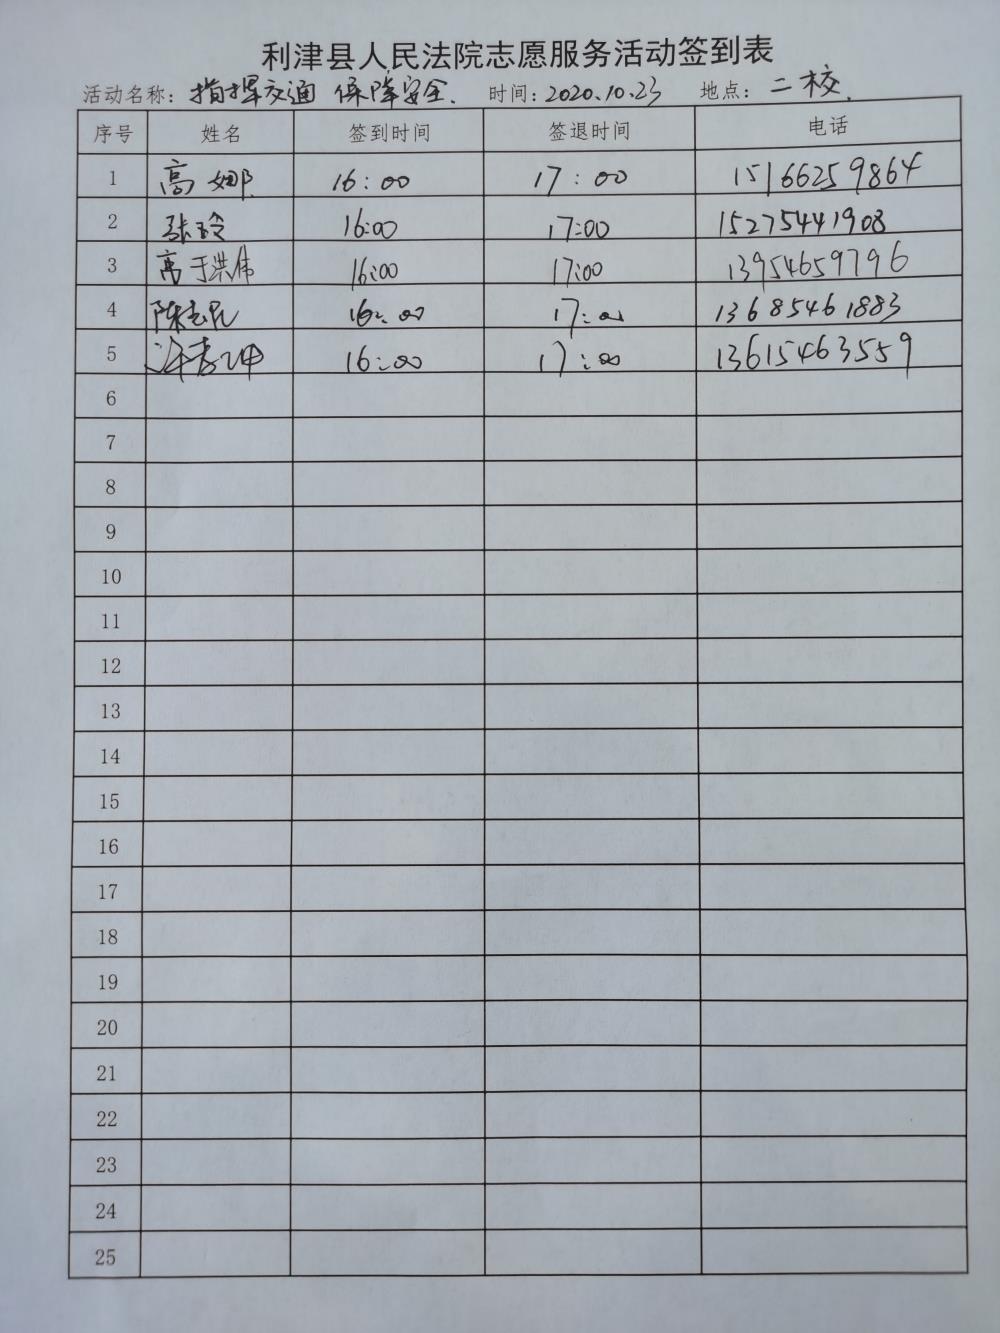 利津县人民法院志愿服务活动签到表
活动名称：指挥交通 保障安全. 时间：2020.10.23 地点：二校.
序号 姓名 签到时间 签退时间 电话
1 高娜 16:00 17:00 15166259864
2 张玲 16:00 17:00 15275441908
3 高于洪伟 16:00 17:00 13954659796
4 陈志民 16:00 17:00 13685461883
5 16:00 17:00 13615463559
6
7
8
9
10
11
12
13
14
15
16
17
18
19
20
21
22
23
24
25